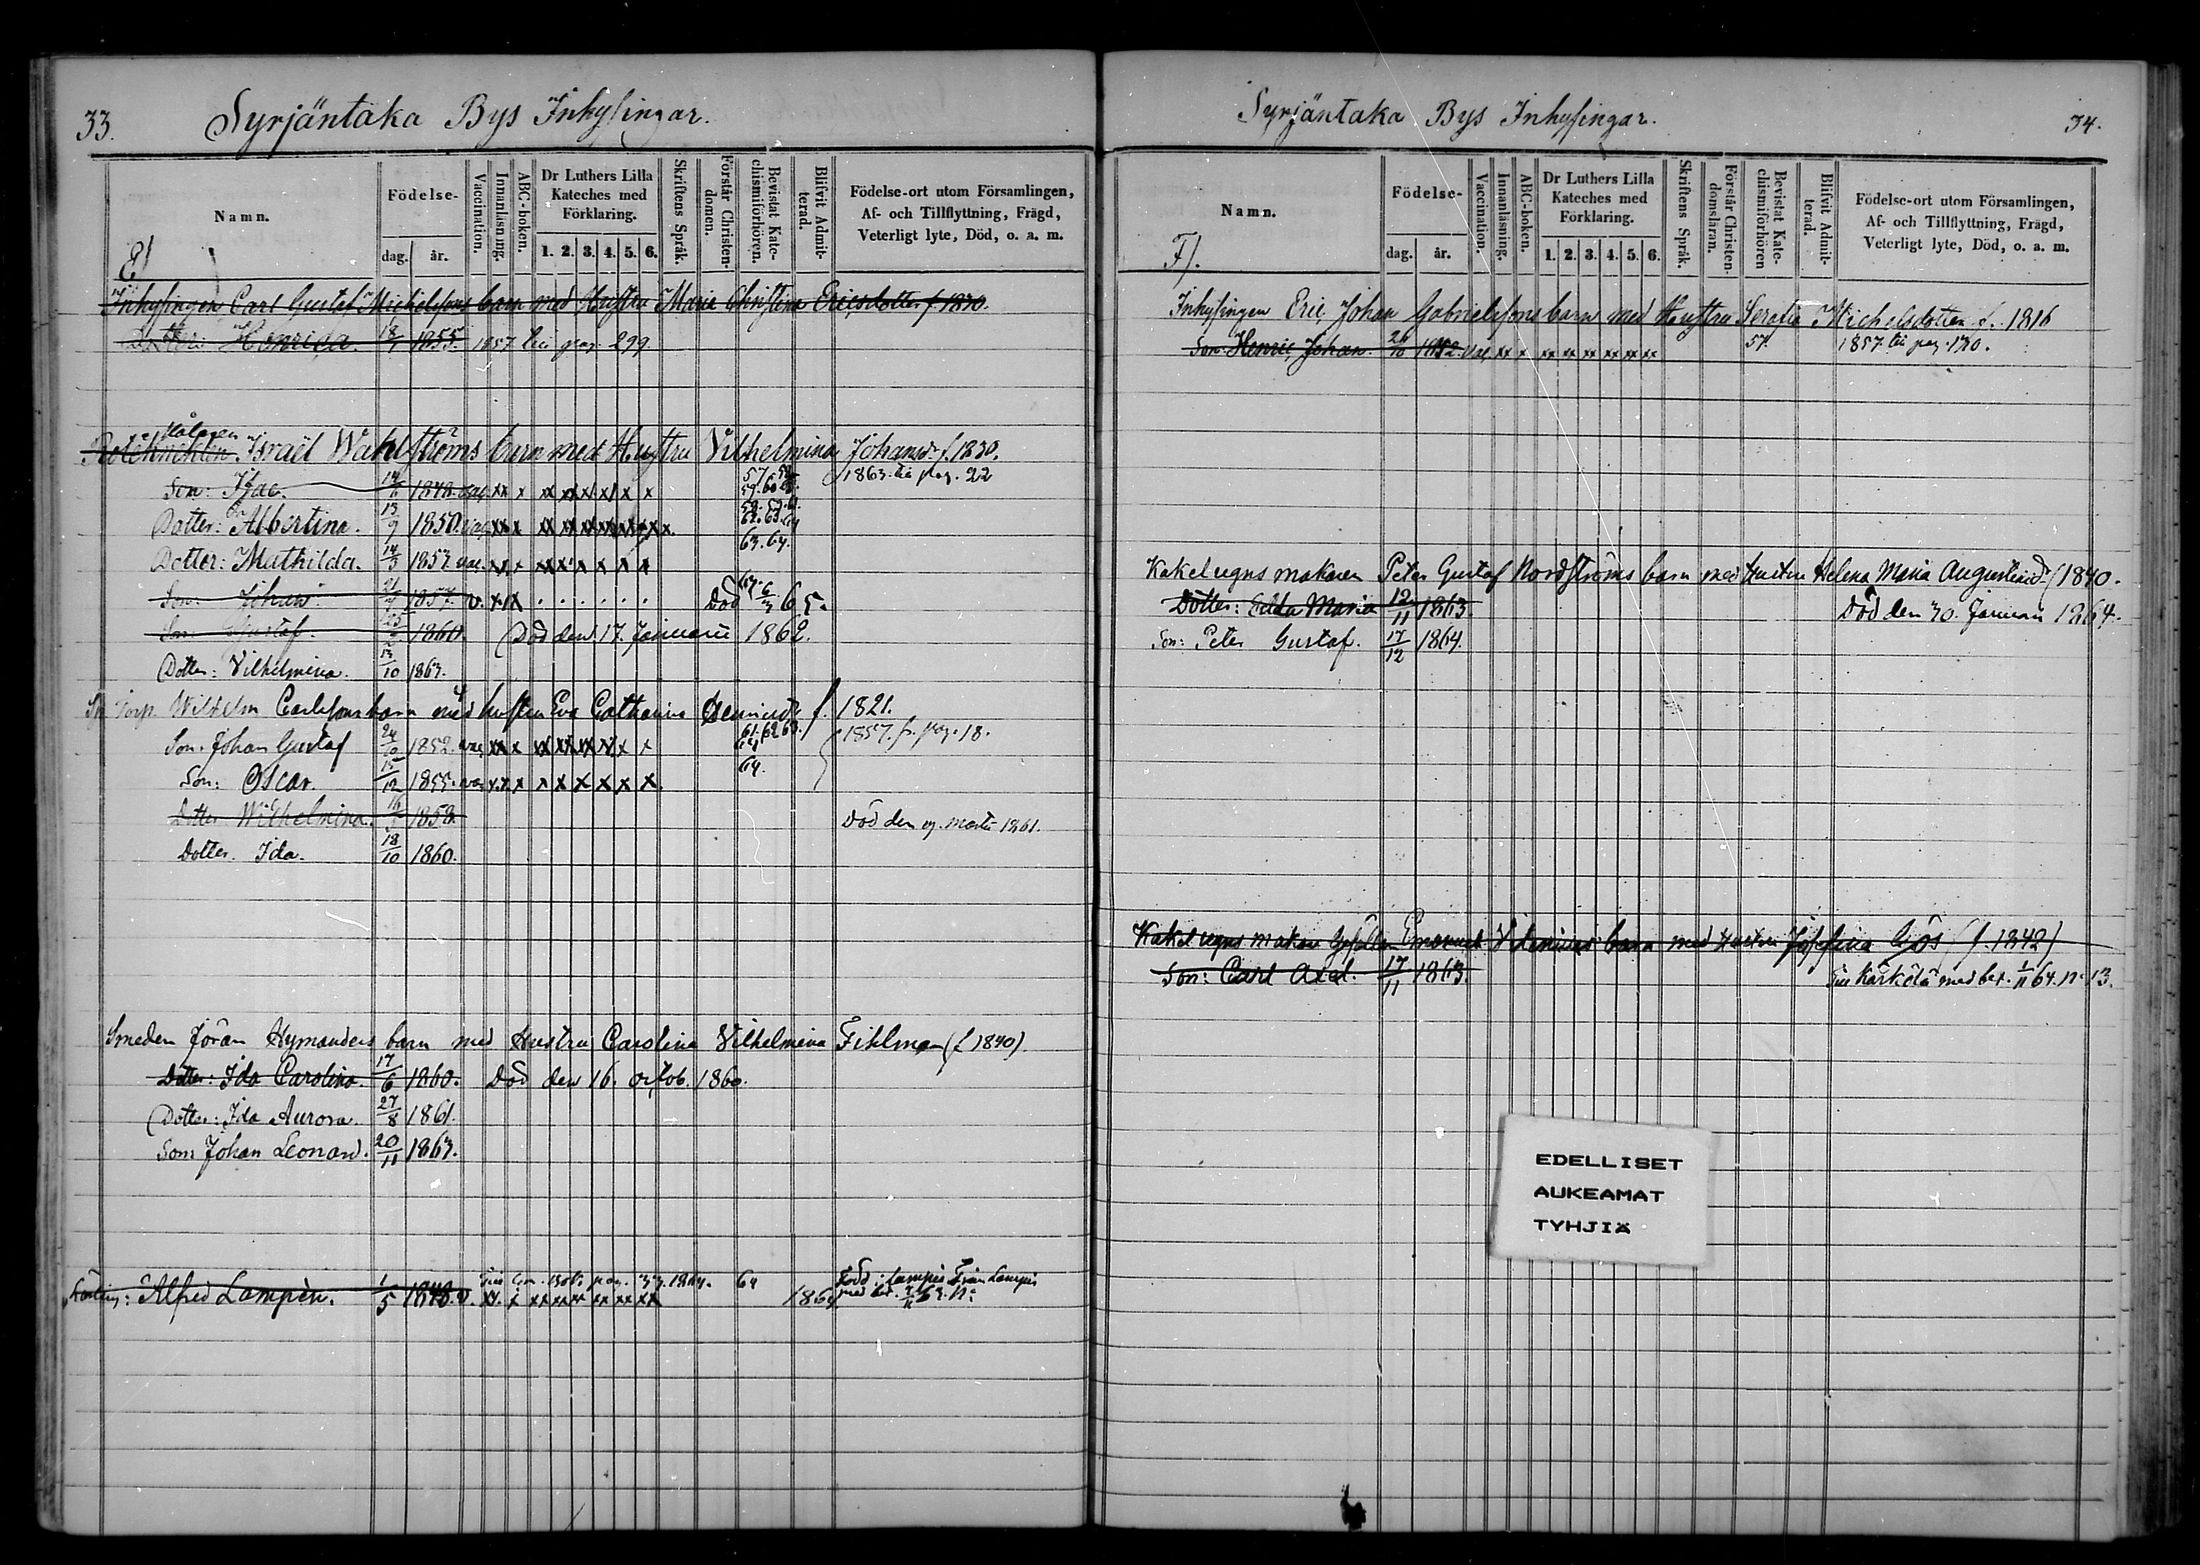 33.
Syrjäntaka Bys Inhysingar.
Namn.
Födelse-
dag.
år.
Vaccination.
Innanläsning.
ABC-boken.
Dr Luthers Lilla
Kateches med
Förklaring.
1. 2. 3. 4. 5. 6.
Skriftens Språk.
Förstår Christen-
domen.
Bevistat Kate-
chismiförhören.
Blifvit Admit-
terad.
Födelse-ort utom Församlingen,
Af- och Tillflyttning, Frägd,
Veterligt lyte, Död, o. a. m.
E)
Inhysingen Carl Gustaf Michelssons barn med Hustru Maria Christina Ericsdotter f. 1830.
Dotter: Henrica. 1855. 1857 till pag. 299
Israël Wahlströms barn med Hustru Vilhelmina Johansdr f. 1830.
Son: Isac. 1848. vac. xx x xx xx xx x x x 1863. till pag. 22
Dotter: Albertina. 13/9 1850. vac.
Dotter: Mathilda. 14/3 1853. vac. 63. 64.
Son: Johan. 1857. v. Död 6/3 65.
Son: Gustaf. 1860. Död den 17. Januarii 1862.
Dotter: Vilhelmina. 13/10 1863.
Torp. Wilhelm Carlssons barn med hustru Eva Catharina f. 1821.
Son. Johan Gustaf 24/10 1852. vac. 61. 62. 63. 64 1857. fr. pag. 18.
Son: Oscar. 15/12 1855. vac. 64.
Dotter Wilhelmina. 1858. Död den 9. Martii 1861.
Dotter. Ida. 18/10 1860.
Smeden Jöran Hymanders barn med Hustru Carolina Vilhelmina Fihlman (f. 1840).
Dotter: Ida Carolina. 17/6 1860. Död den 16. Octob. 1860.
Dotter: Ida Aurora. 27/8 1861.
Son: Johan Leonard. 20/11 1863.
Alfred Lampèn. 1/5 1848. v. pag. 33. 1864. 64 1864 Född i Lampis. Från Lampis
Syrjäntaka Bys Inhysingar.
34.
Namn.
Födelse-
dag.
år.
Vaccination.
Innanläsning.
ABC-boken.
Dr Luthers Lilla
Kateches med
Förklaring.
1. 2. 3. 4. 5. 6.
Skriftens Språk.
Förstår Christen-
domsläran.
Bevistat Kate-
chismiförhören
Blifvit Admit-
terad.
Födelse-ort utom Församlingen,
Af- och Tillflyttning, Frägd,
Veterligt lyte, Död, o. a. m.
F).
Inhysingen Eric Johan Gabrielssons barn med Hustru Serafia Michelsdotter f. 1816
Son Henric Johan. 1852. vac. xx x xx xx xx xx xx xx 57. 1857 till pag. 120.
Kakelugnsmakaren Peter Gustaf Nordströms barn med Hustru Helena Maria Augustindr (1840.
Dotter: Edda Maria 12/11 1863. Död den 30. Januari 1864.
Son: Peter Gustaf. 17/12 1864.
Kakelugns makare Gesällen Emanuel barn med Hustru Josefina Gös (f. 1842)
Son: Carl Axel. 17/11 1863. Till Kärkölä med bet. 1/11 64. N: 13.
EDELLISET
AUKEAMAT
TYHJIÄ